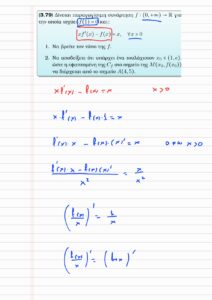 (3.79) Δίνεται παραγωγίσιμη συνάρτηση f : (0, +∞) → ℝ για
την οποία ισχύει f(1) = 0 και:
xf′(x) − f(x) = x, ∀x > 0
1. Να βρείτε τον τύπο της f.
2. Να αποδείξετε ότι υπάρχει ένα τουλάχιστον x₀ ∈ (1, e),
ώστε η εφαπτομένη της C_f στο σημείο της M(x₀, f(x₀))
να διέρχεται από το σημείο A(4, 5).
x f′(x) − f(x) = x x > 0
x · f′(x) − f(x) · 1 = x
x · f′(x) − f(x) · (x)′ = x
f′(x) · x − f(x) (x)′ / x² = x / x²
(f(x) / x)′ = 1 / x
(f(x) / x)′ = (ln x)′